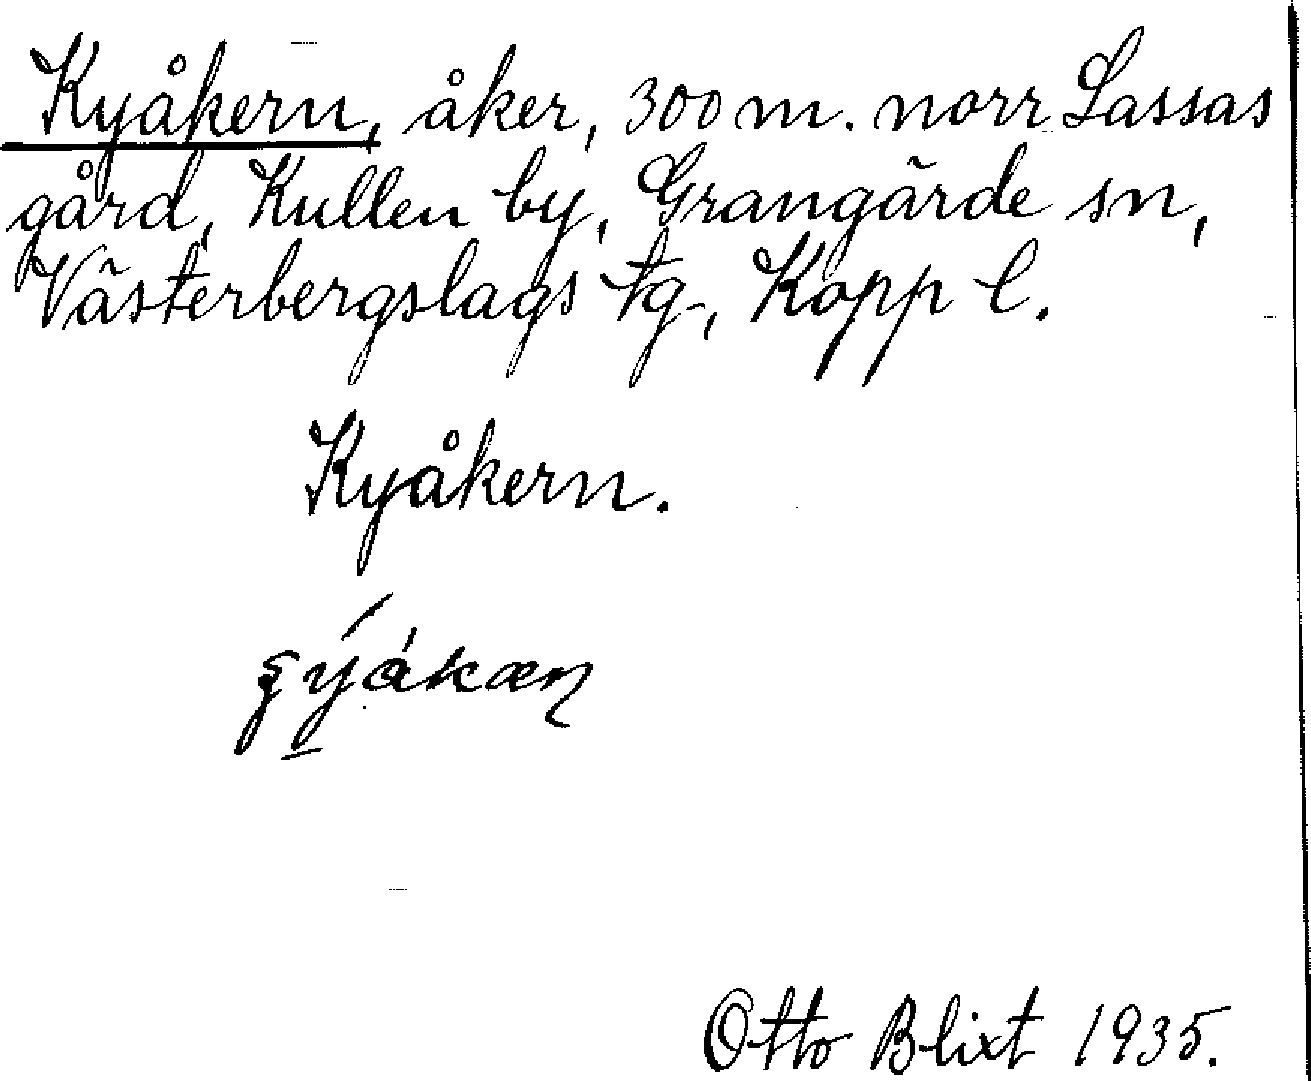 Kyåkern, åker, 300 m. norr Lassas
gård, Kullen by, Grangärde sn,
Västerbergslags tg, Kopp l.
Kyåkern.
Otto Blixt 1935.